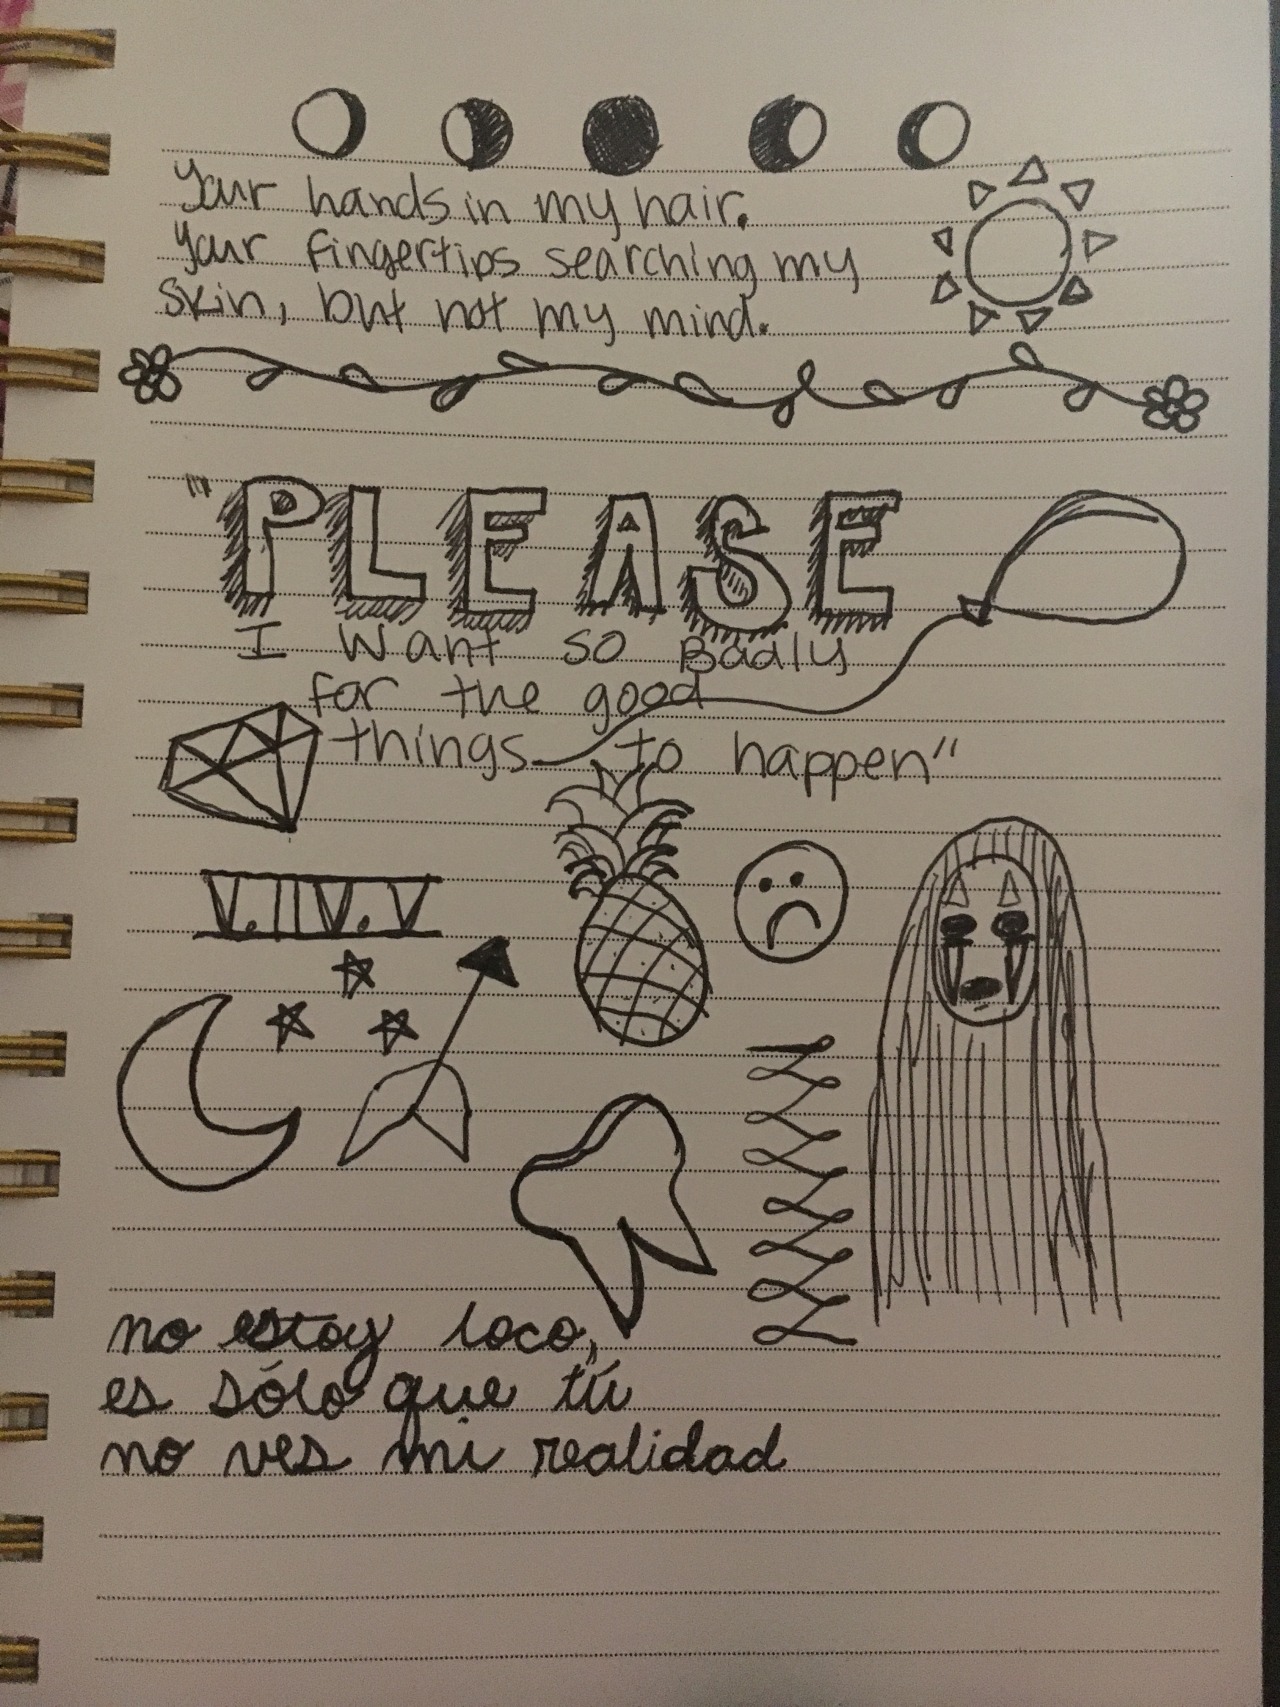 Your hands in my hair.
Your fingertips searching my
skin, but not my mind.
"PLEASE
I want so Badly
for the good
things to happen"
V.IIV.V
no estoy loco,
es sólo que tú
no ves mi realidad